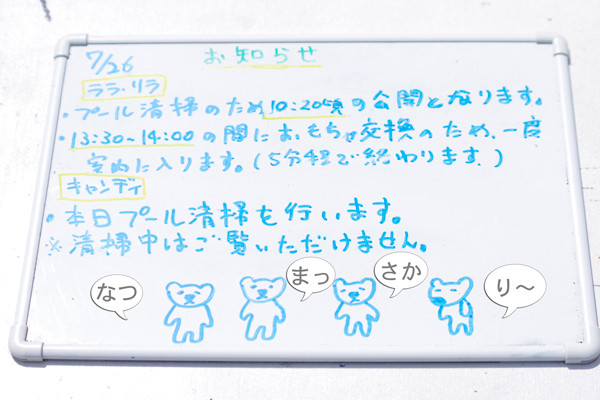 7/26
お知らせ
ララ・リラ
・プール清掃のため10:20頃の公開となります。
・13:30~14:00の間におもちゃ交換のため、一度
室内に入ります。(5分程で終わります。)
キャンディ
・本日プール清掃を行います。
※清掃中はご覧いただけません。
なつ
まっ
さか
り〜